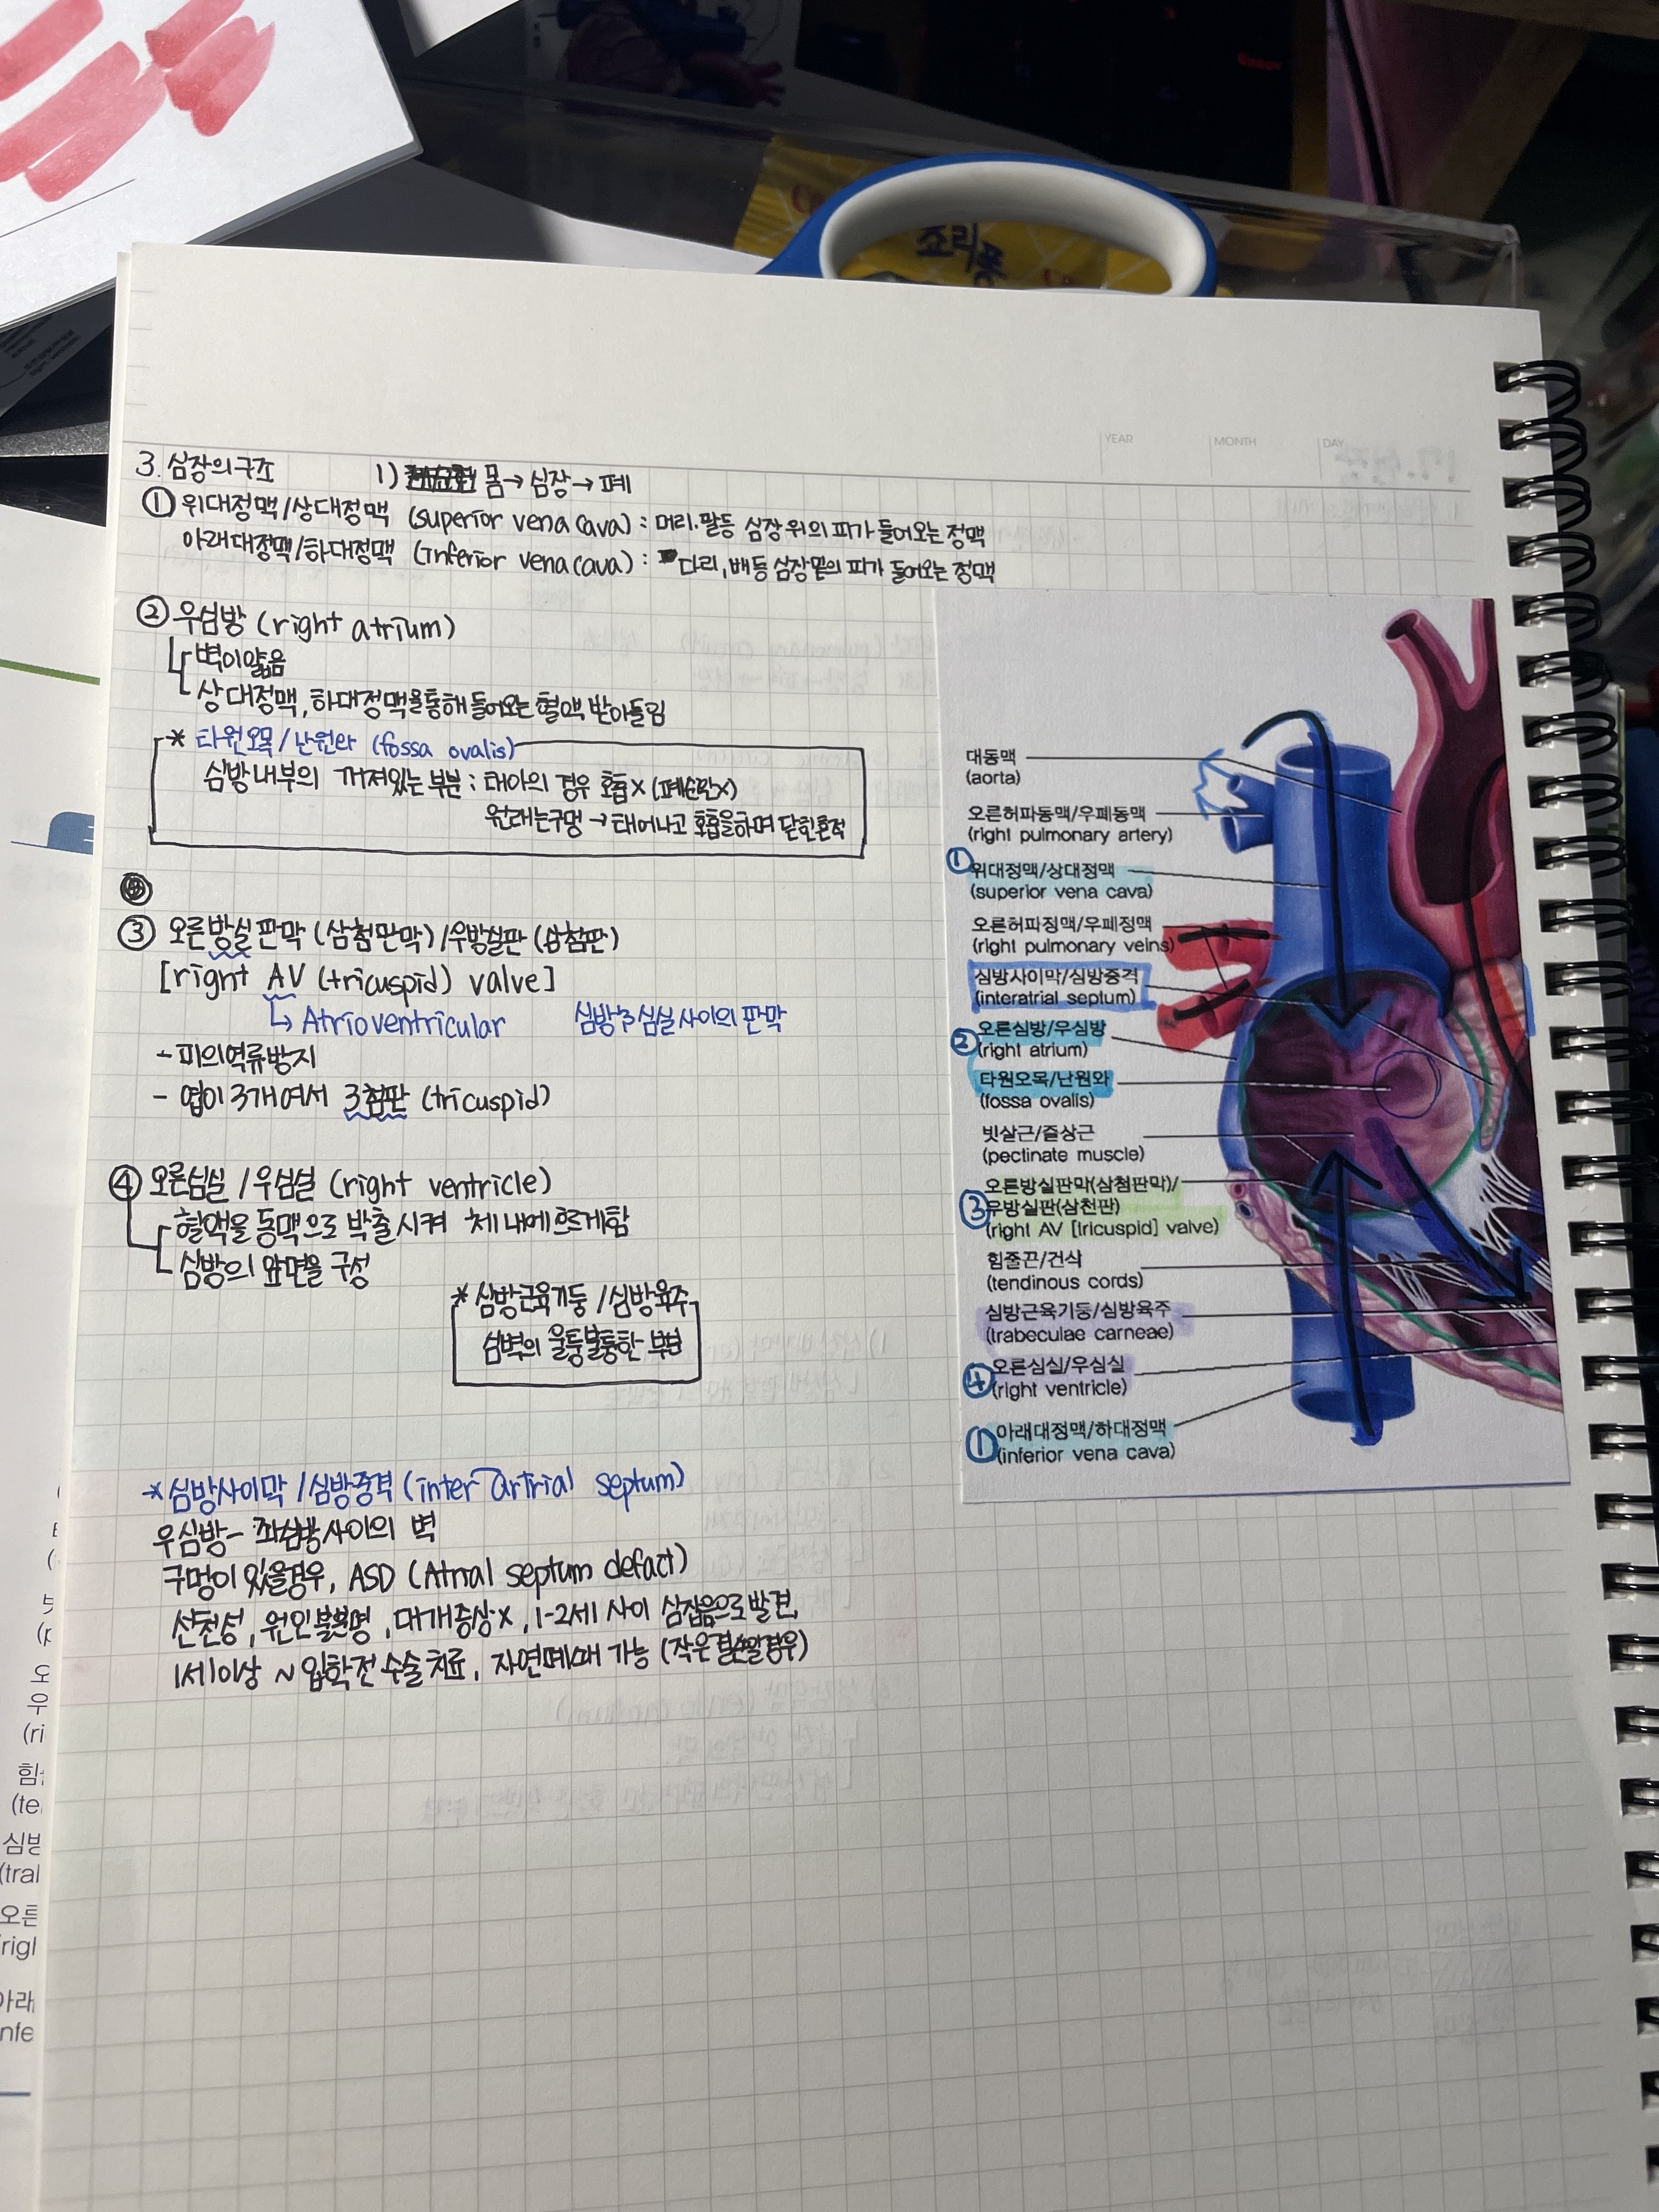 죠리퐁
YEAR
MONTH
DAY
3. 심장의구조 1) 몸→심장→폐
① 위대정맥/상대정맥 (superior vena cava) : 머리.팔등 심장위의 피가 들어오는 정맥
아래대정맥/하대정맥 (inferior vena cava) : 다리, 배등 심장밑의 피가 들어오는 정맥
② 우심방 (right atrium)
벽이얇음
상대정맥, 하대정맥을통해 들어오는 혈액 받아들임
* 타원오목/난원와 (fossa ovalis)
심방내부의 꺼져있는 부분 : 태아의 경우 호흡X (폐순환X)
원래는구멍 → 태어나고 호흡을하며 닫힌흔적
③ 오른방실판막 (삼첨판막)/우방실판 (삼첨판)
[right AV (tricuspid) valve]
↳ Atrioventricular 심방과 심실사이의 판막
- 피의역류방지
- 엽이 3개여서 3첨판 (tricuspid)
④ 오른심실 / 우심실 (right ventricle)
혈액을 동맥으로 박출시켜 체내에흐르게함
심방의 앞면을 구성
* 심방근육기둥 /심방육주
심벽의 울퉁불퉁한 부분
* 심방사이막 /심방중격 (inter artrial septum)
우심방- 좌심방사이의 벽
구멍이 있을경우, ASD (Atrial septum defact)
선천성, 원인불분명, 대개증상X, 1-2세 사이 심잡음으로발견,
1세이상 ~ 입학전 수술치료, 자연폐쇄 가능 (작은결손일경우)
대동맥
(aorta)
오른허파동맥/우폐동맥
(right pulmonary artery)
① 위대정맥/상대정맥
(superior vena cava)
오른허파정맥/우폐정맥
(right pulmonary veins)
심방사이막/심방중격
(interatrial septum)
② 오른심방/우심방
(right atrium)
타원오목/난원와
(fossa ovalis)
빗살근/즐상근
(pectinate muscle)
오른방실판막(삼첨판막)/
③ 우방실판(삼천판)
(right AV [tricuspid] valve)
힘줄끈/건삭
(tendinous cords)
심방근육기둥/심방육주
(trabeculae carneae)
④ 오른심실/우심실
(right ventricle)
① 아래대정맥/하대정맥
(inferior vena cava)